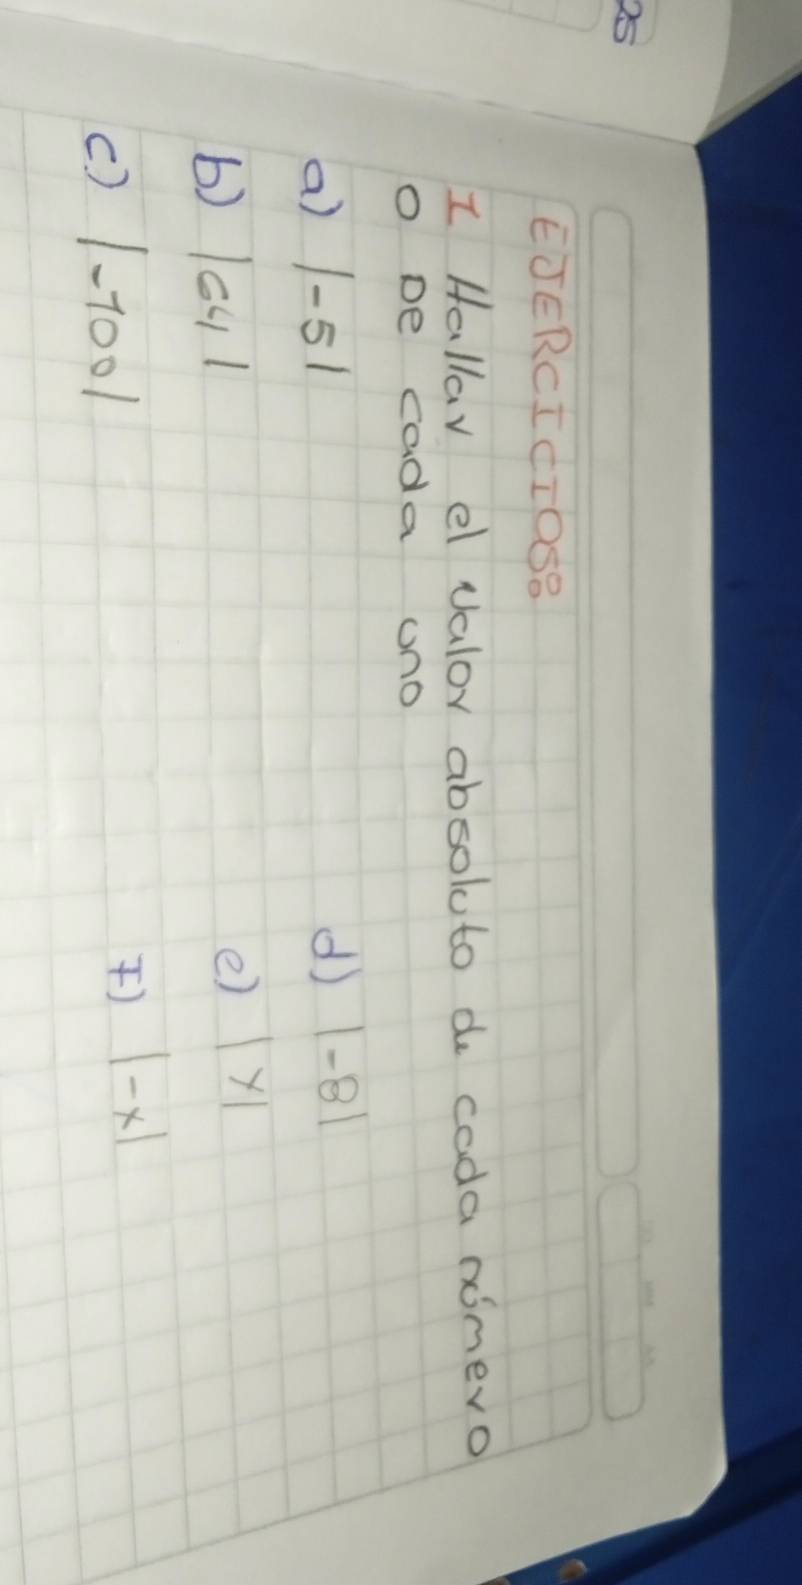 25
EJERCICIOS:
I Hallar el valor absoluto de cada número
o De cada uno
a) |-5|
d) |-8|
b) |64|
e) |y|
c) |-100|
f) |-x|